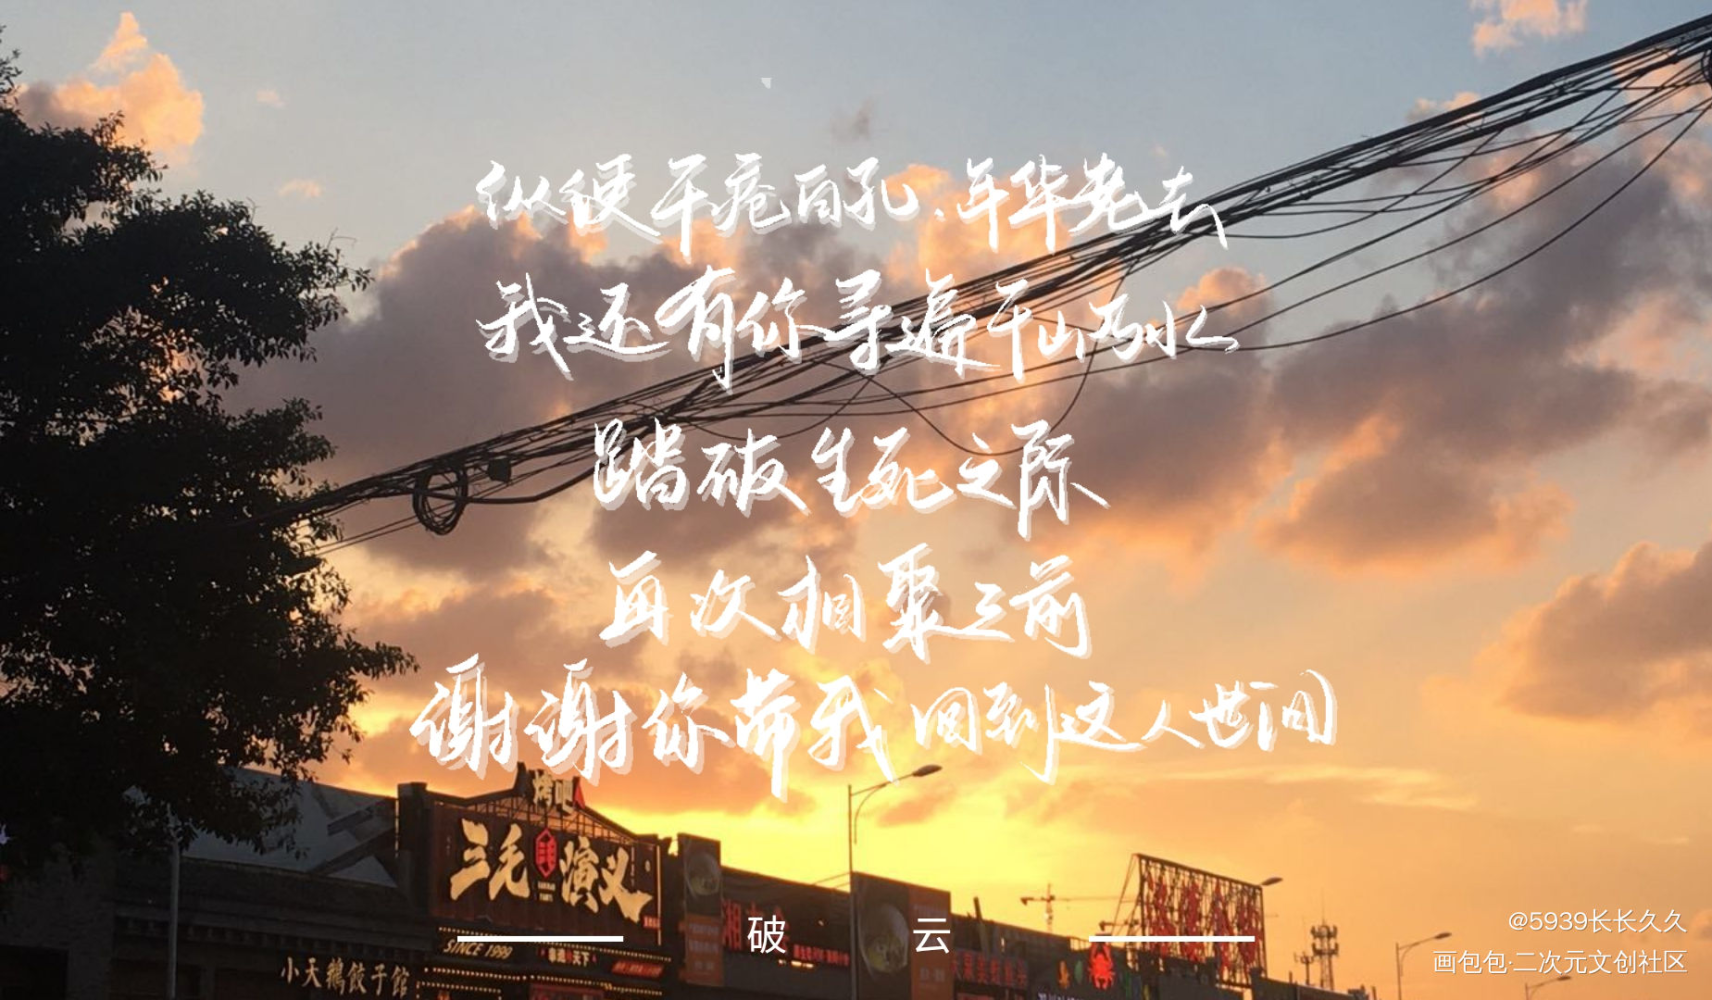 纵使千疮百孔.年华老去
我还有你寻遍千山万水
踏破生死之际
再次相聚之前
谢谢你带我回到这人世间
烤吧
三毛演义
SINCE 1999
小天鹅饺子馆
破 云
@5939长长久久
画包包·二次元文创社区